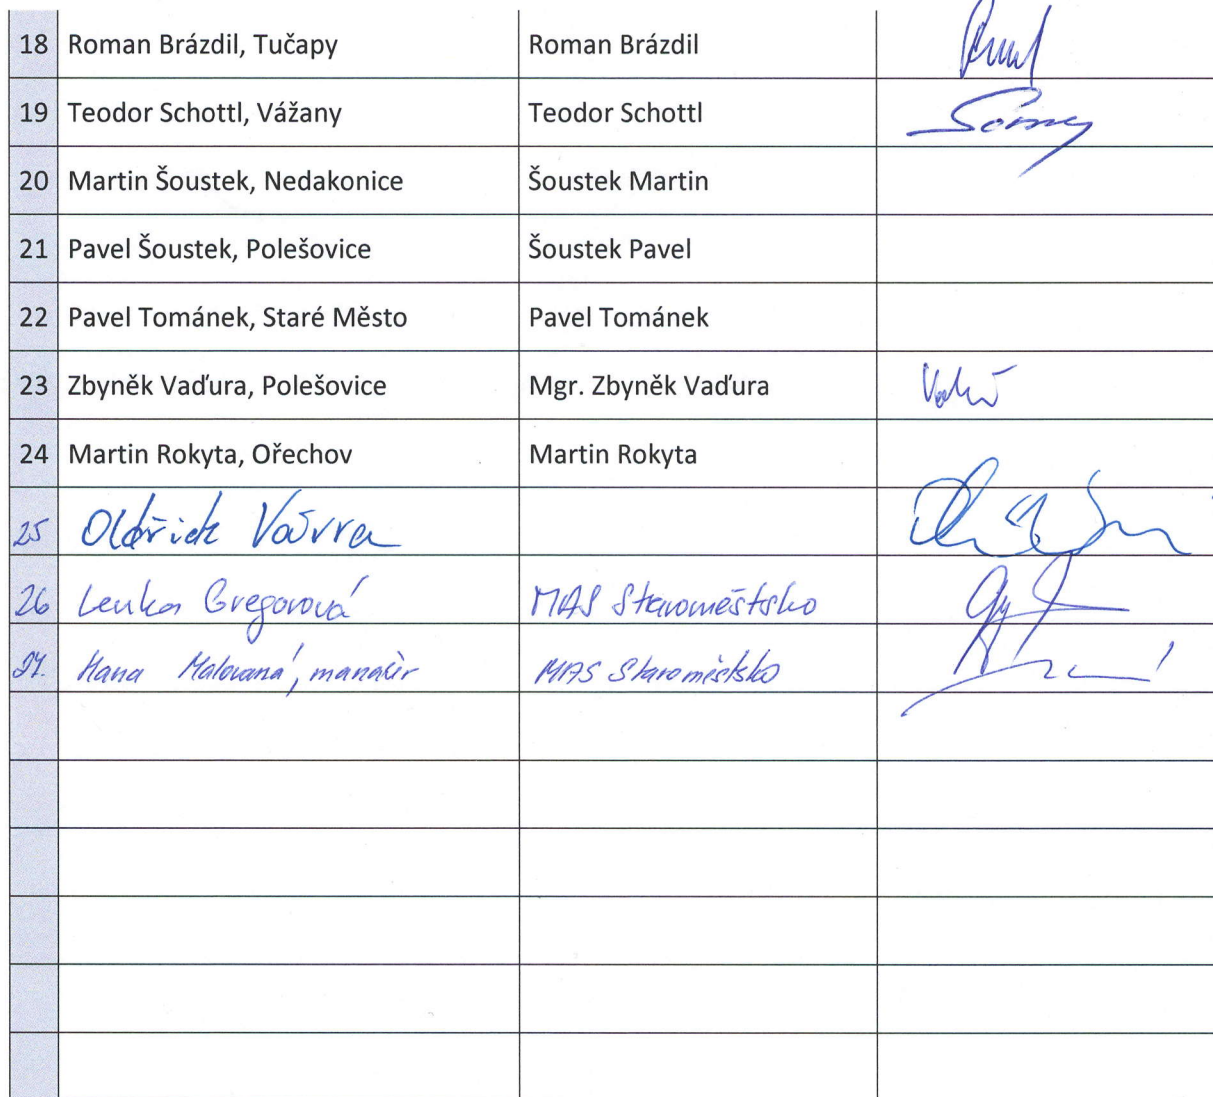 18 Roman Brázdil, Tučapy Roman Brázdil
19 Teodor Schottl, Vážany Teodor Schottl
20 Martin Šoustek, Nedakonice Šoustek Martin
21 Pavel Šoustek, Polešovice Šoustek Pavel
22 Pavel Tománek, Staré Město Pavel Tománek
23 Zbyněk Vaďura, Polešovice Mgr. Zbyněk Vaďura
24 Martin Rokyta, Ořechov Martin Rokyta
25 Oldřich
26 Lenka Gregorová MAS Staroměstsko
27. Hana Malovaná, manažer MAS Staroměstsko